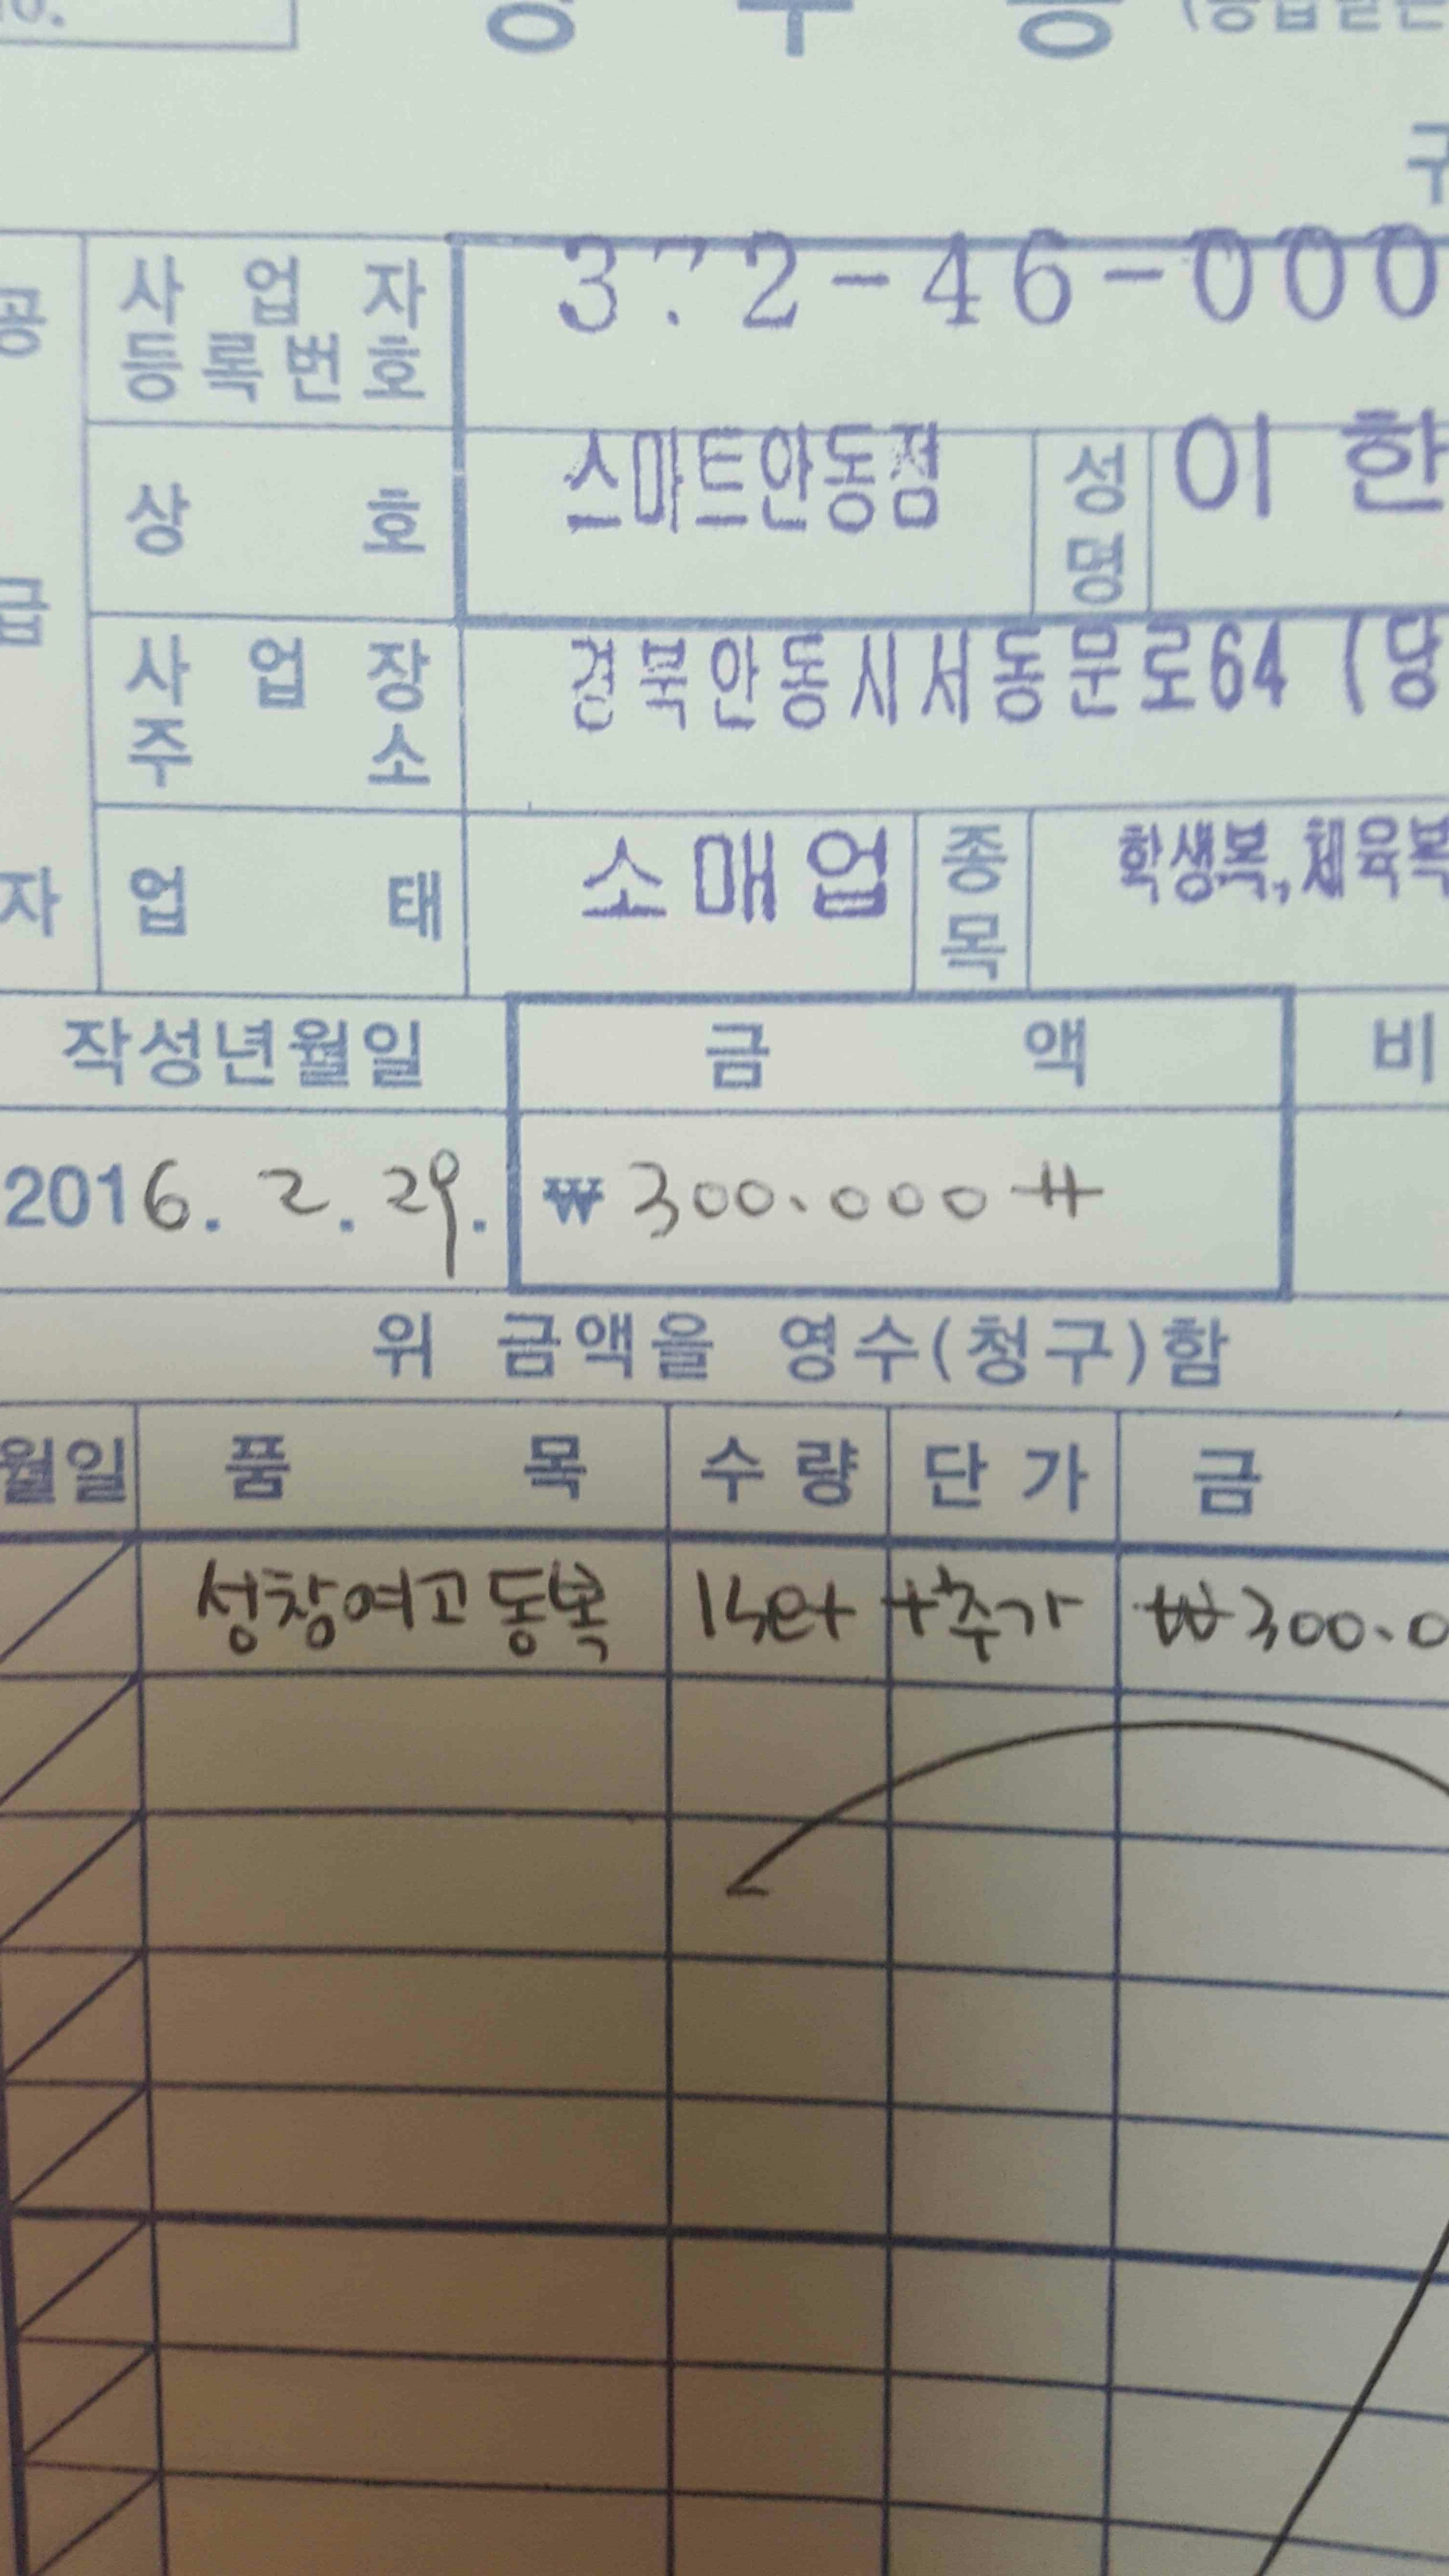 영 수 증 (공급받는
공 급 자
사업자등록번호 372-46-000
상호 스마트안동점 성명 이 한
사업장주소 경북안동시서동문로64 (당
업태 소매업 종목 학생복,체육복
작성년월일 금액 비
2016. 2. 29. ₩ 300.000
위 금액을 영수(청구)함
월일 품목 수량 단가 금
성창여고동복 1set +추가 ₩300.0